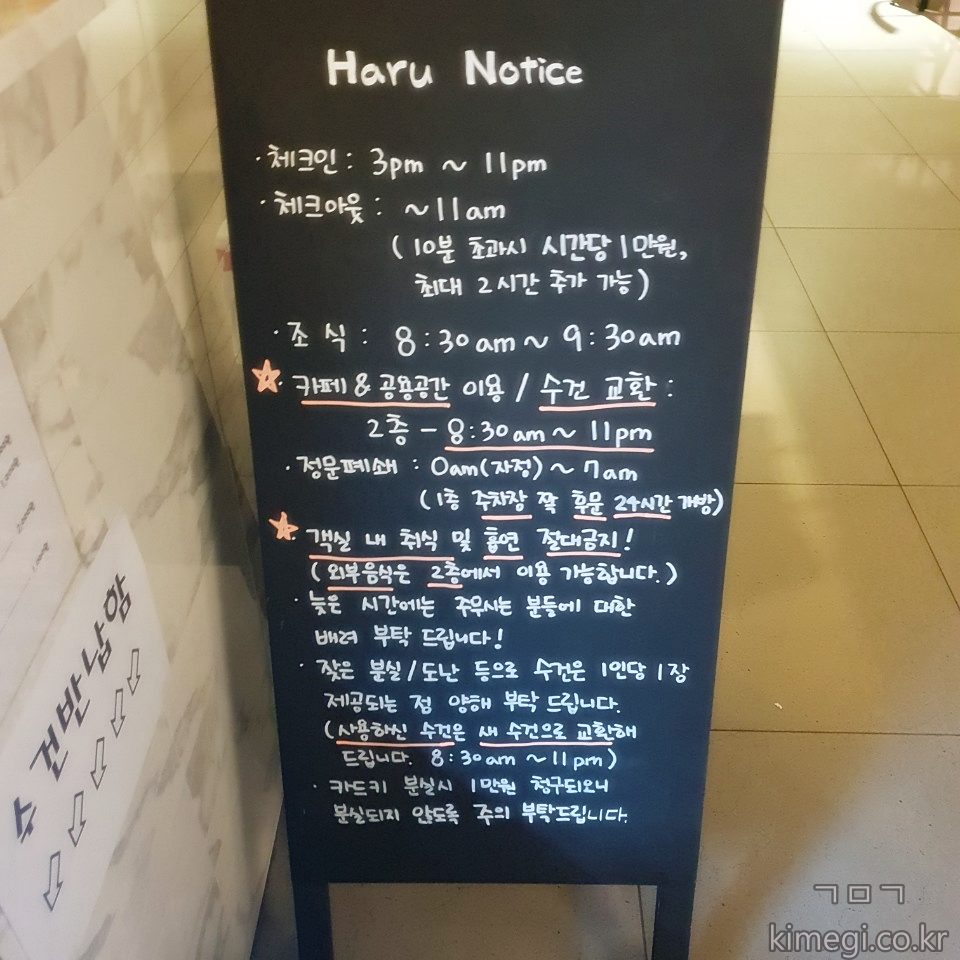 Haru Notice
· 체크인 : 3pm ~ 11pm
· 체크아웃 : ~11am
(10분 초과시 시간당 1만원,
최대 2시간 추가 가능)
· 조 식 : 8:30am ~ 9:30am
· 카페 & 공용공간 이용 / 수건 교환 :
2층 - 8:30am ~ 11pm
· 정문폐쇄 : 0am(자정) ~ 7am
(1층 주차장 쪽 후문 24시간 개방)
· 객실 내 취식 및 흡연 절대금지!
(외부음식은 2층에서 이용 가능합니다.)
· 늦은 시간에는 주무시는 분들에 대한
배려 부탁 드립니다!
· 잦은 분실/도난 등으로 수건은 1인당 1장
제공되는 점 양해 부탁 드립니다.
(사용하신 수건은 새 수건으로 교환해
드립니다. 8:30am ~ 11pm)
· 카드키 분실시 1만원 청구되오니
분실되지 않도록 주의 부탁드립니다.
수건반납함
ㄱㅁㄱ
kimegi.co.kr